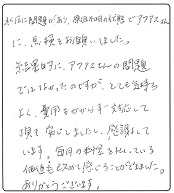 水周に問題があり、原因不明の状態でアクアスさん
に、点検をお願いしました。
結果的に、アクアスさんの問題
ではなかったのですが、とても気持ち
よく、費用もかからず対応して
頂き安心しましたし、感謝して
います。毎月の料金を払っている
価値も改めて感じることができました。
ありがとうございます。